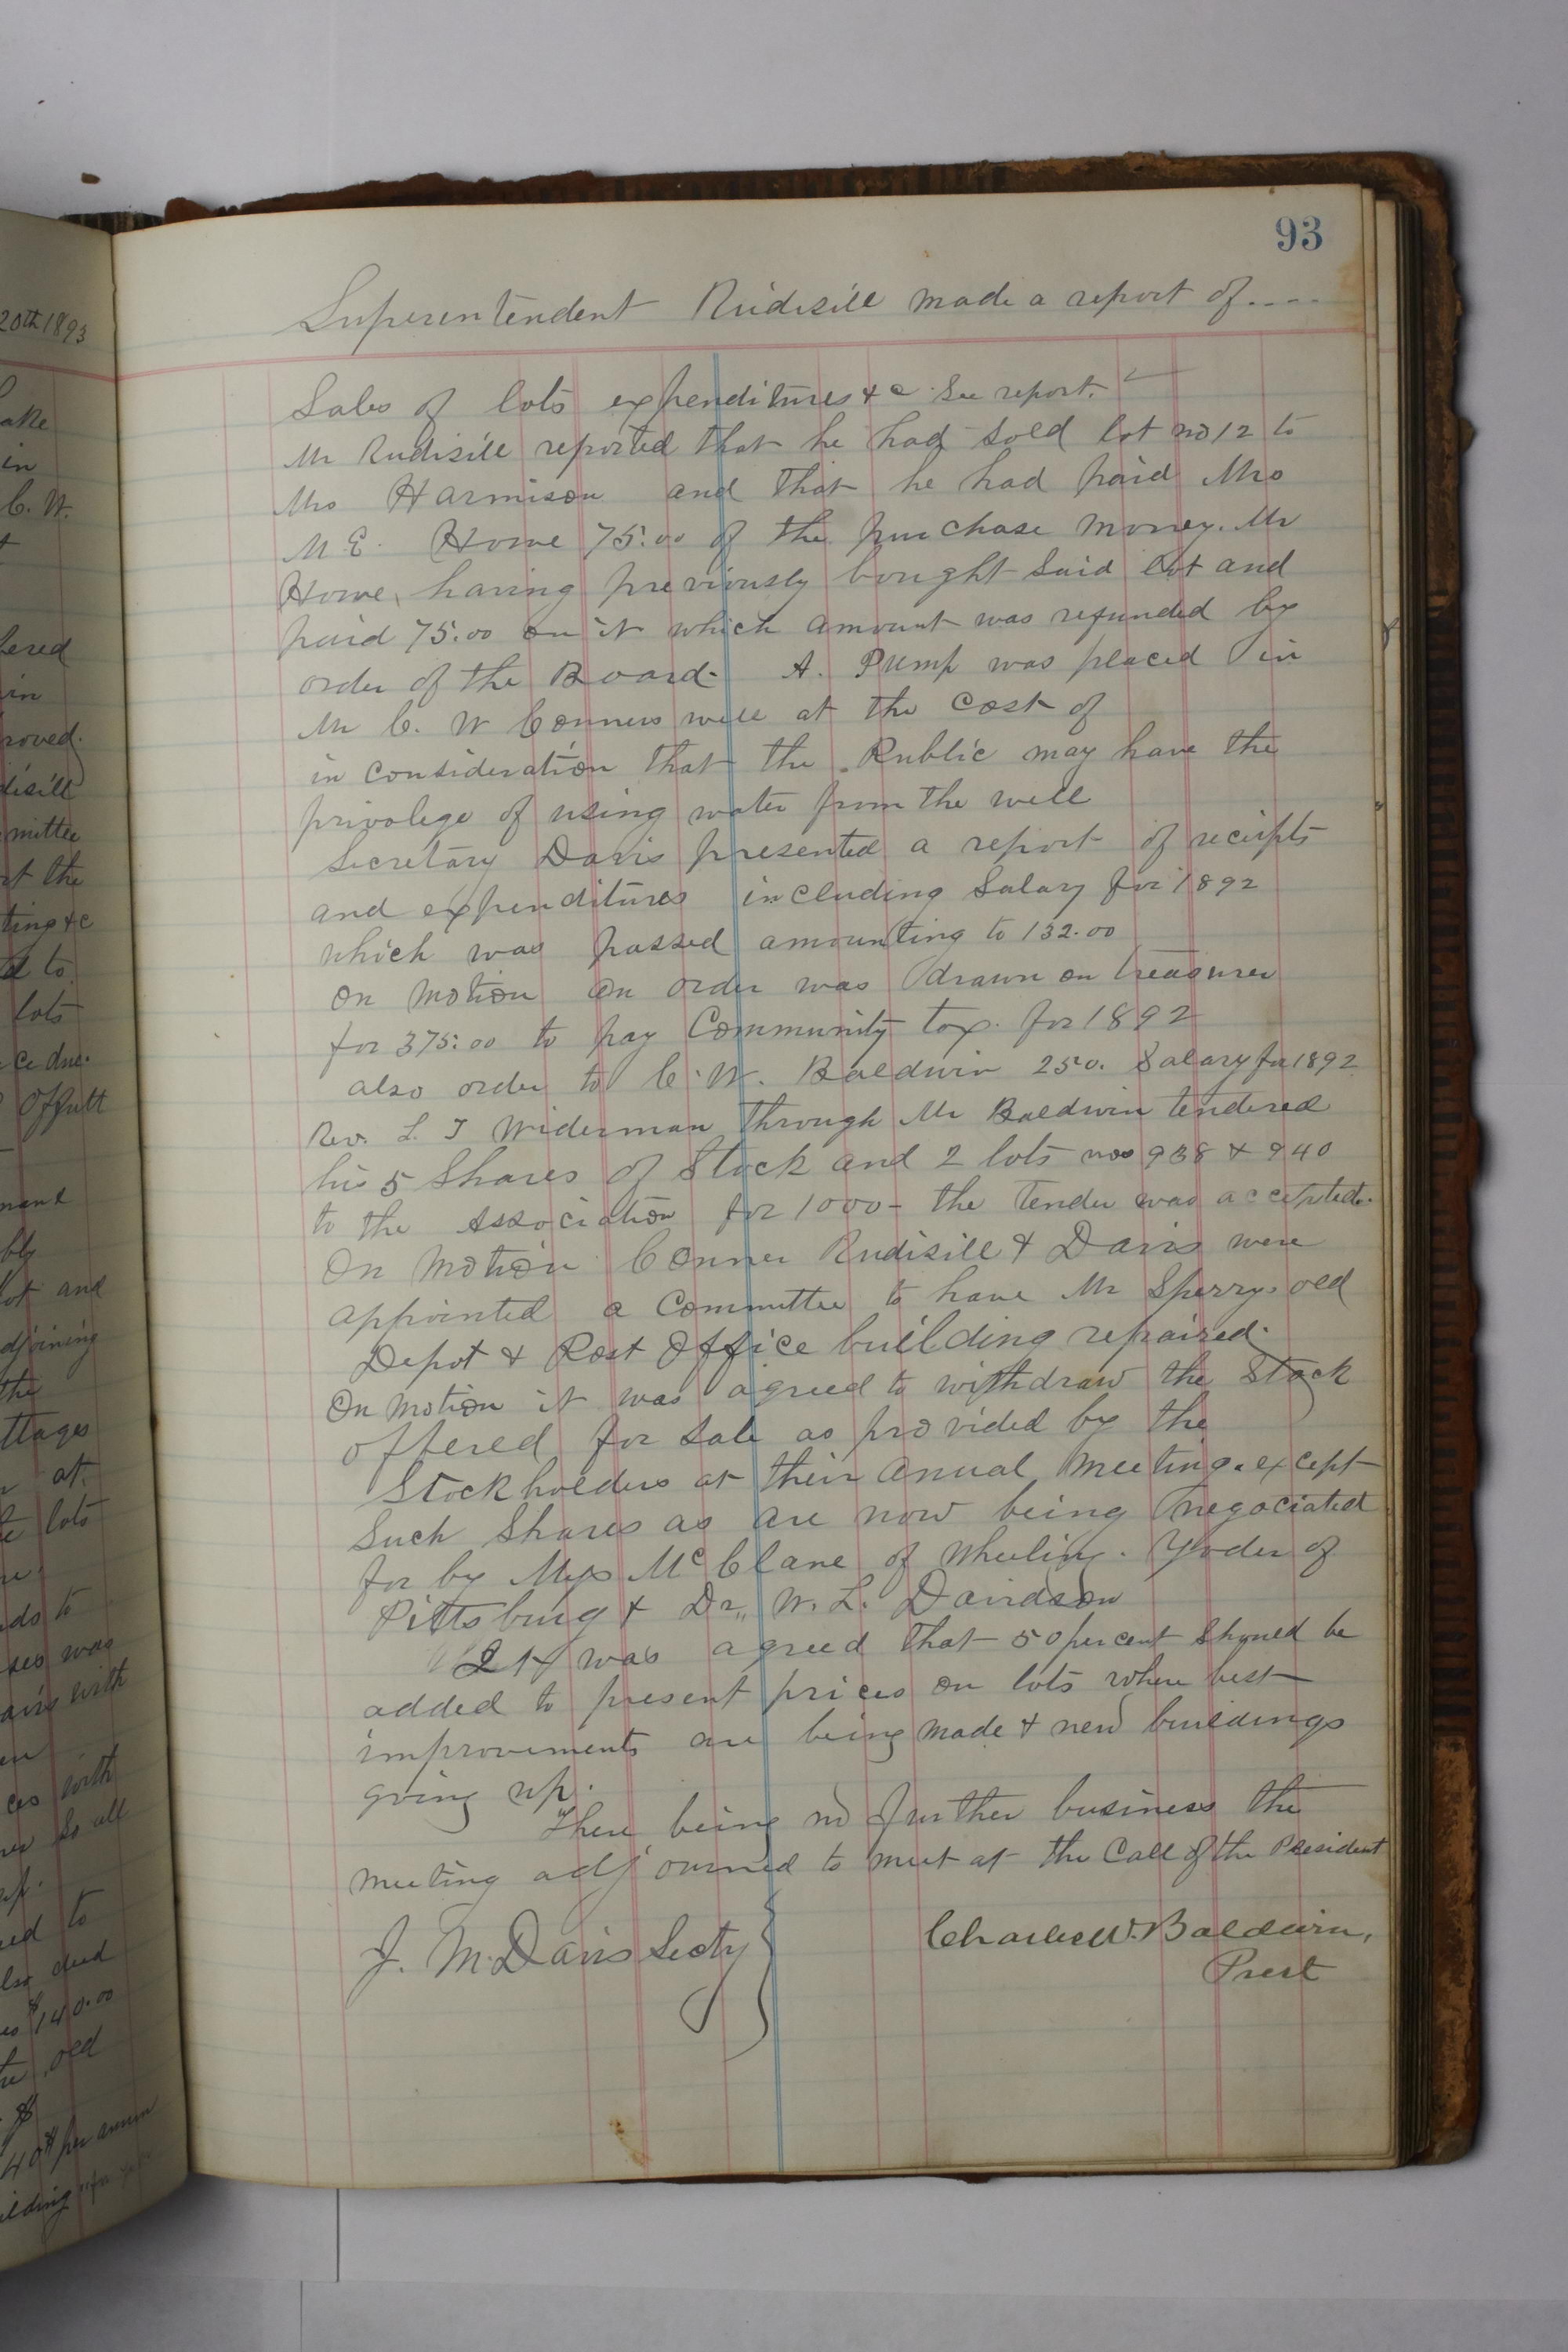 20th 1893
ake
in
C. W.
fered
in
roved.
disill
mittee
rt the
ting &c
d to
lots
ce due.
Offutt
bly
ot and
djoining
the
ttages
at
lots
ds to
ses was
airs with
ces with
so all
up.
ed to
deed
$140.00
old
40 per annum
ilding
93
Superentendent Rudisill made a report of....
Sales of lots expenditures & c See report.
Mr Rudisill reported that he had sold lot no 12 to
Mrs Harmison and that he had paid Mrs
M. E. Howe 75.00 of the purchase money. Mr
Howe, having previously bought said lot and
paid 75.00 on it which amount was refunded by
order of the Board. A. Pump was placed in
Mr C. W Conners well at the cost of
in consideration that the Public may have the
privolege of using water from the well
Secretary Davis presented a report of reciepts
and expenditures including Salary for 1892
which was passed amounting to 132.00
on motion an order was drawn on treasurer
for 375.00 to pay Community tax. for 1892
also order to C. W. Baldwin 250. Salary for 1892
Rev. L. T Widerman through Mr Baldwin tendered
his 5 Shares of Stock and 2 lots nos 938 & 940
to the Association for 1000- the tender was accepted.
On motion Conner Rudisill & Davis were
appointed a Committee to have Mr Sperrys old
Depot & Post Office building repaired.
On motion it was agreed to withdraw the Stock
offered for Sale as provided by the
Stockholders at their anual meeting. except
Such Shares as are now being negociated
for by McClane of Wheeling. Yoder of
Pittsburg & Dr,, W. L. Davidson
It was agreed that 50 per cent should be
added to present prices on lots where best
improvements are being made & new buildings
going up.
There being no further business the
meeting adjourned to meet at the Call of the President
J. M. Davis Secty
Charles W. Baldwin,
Prest